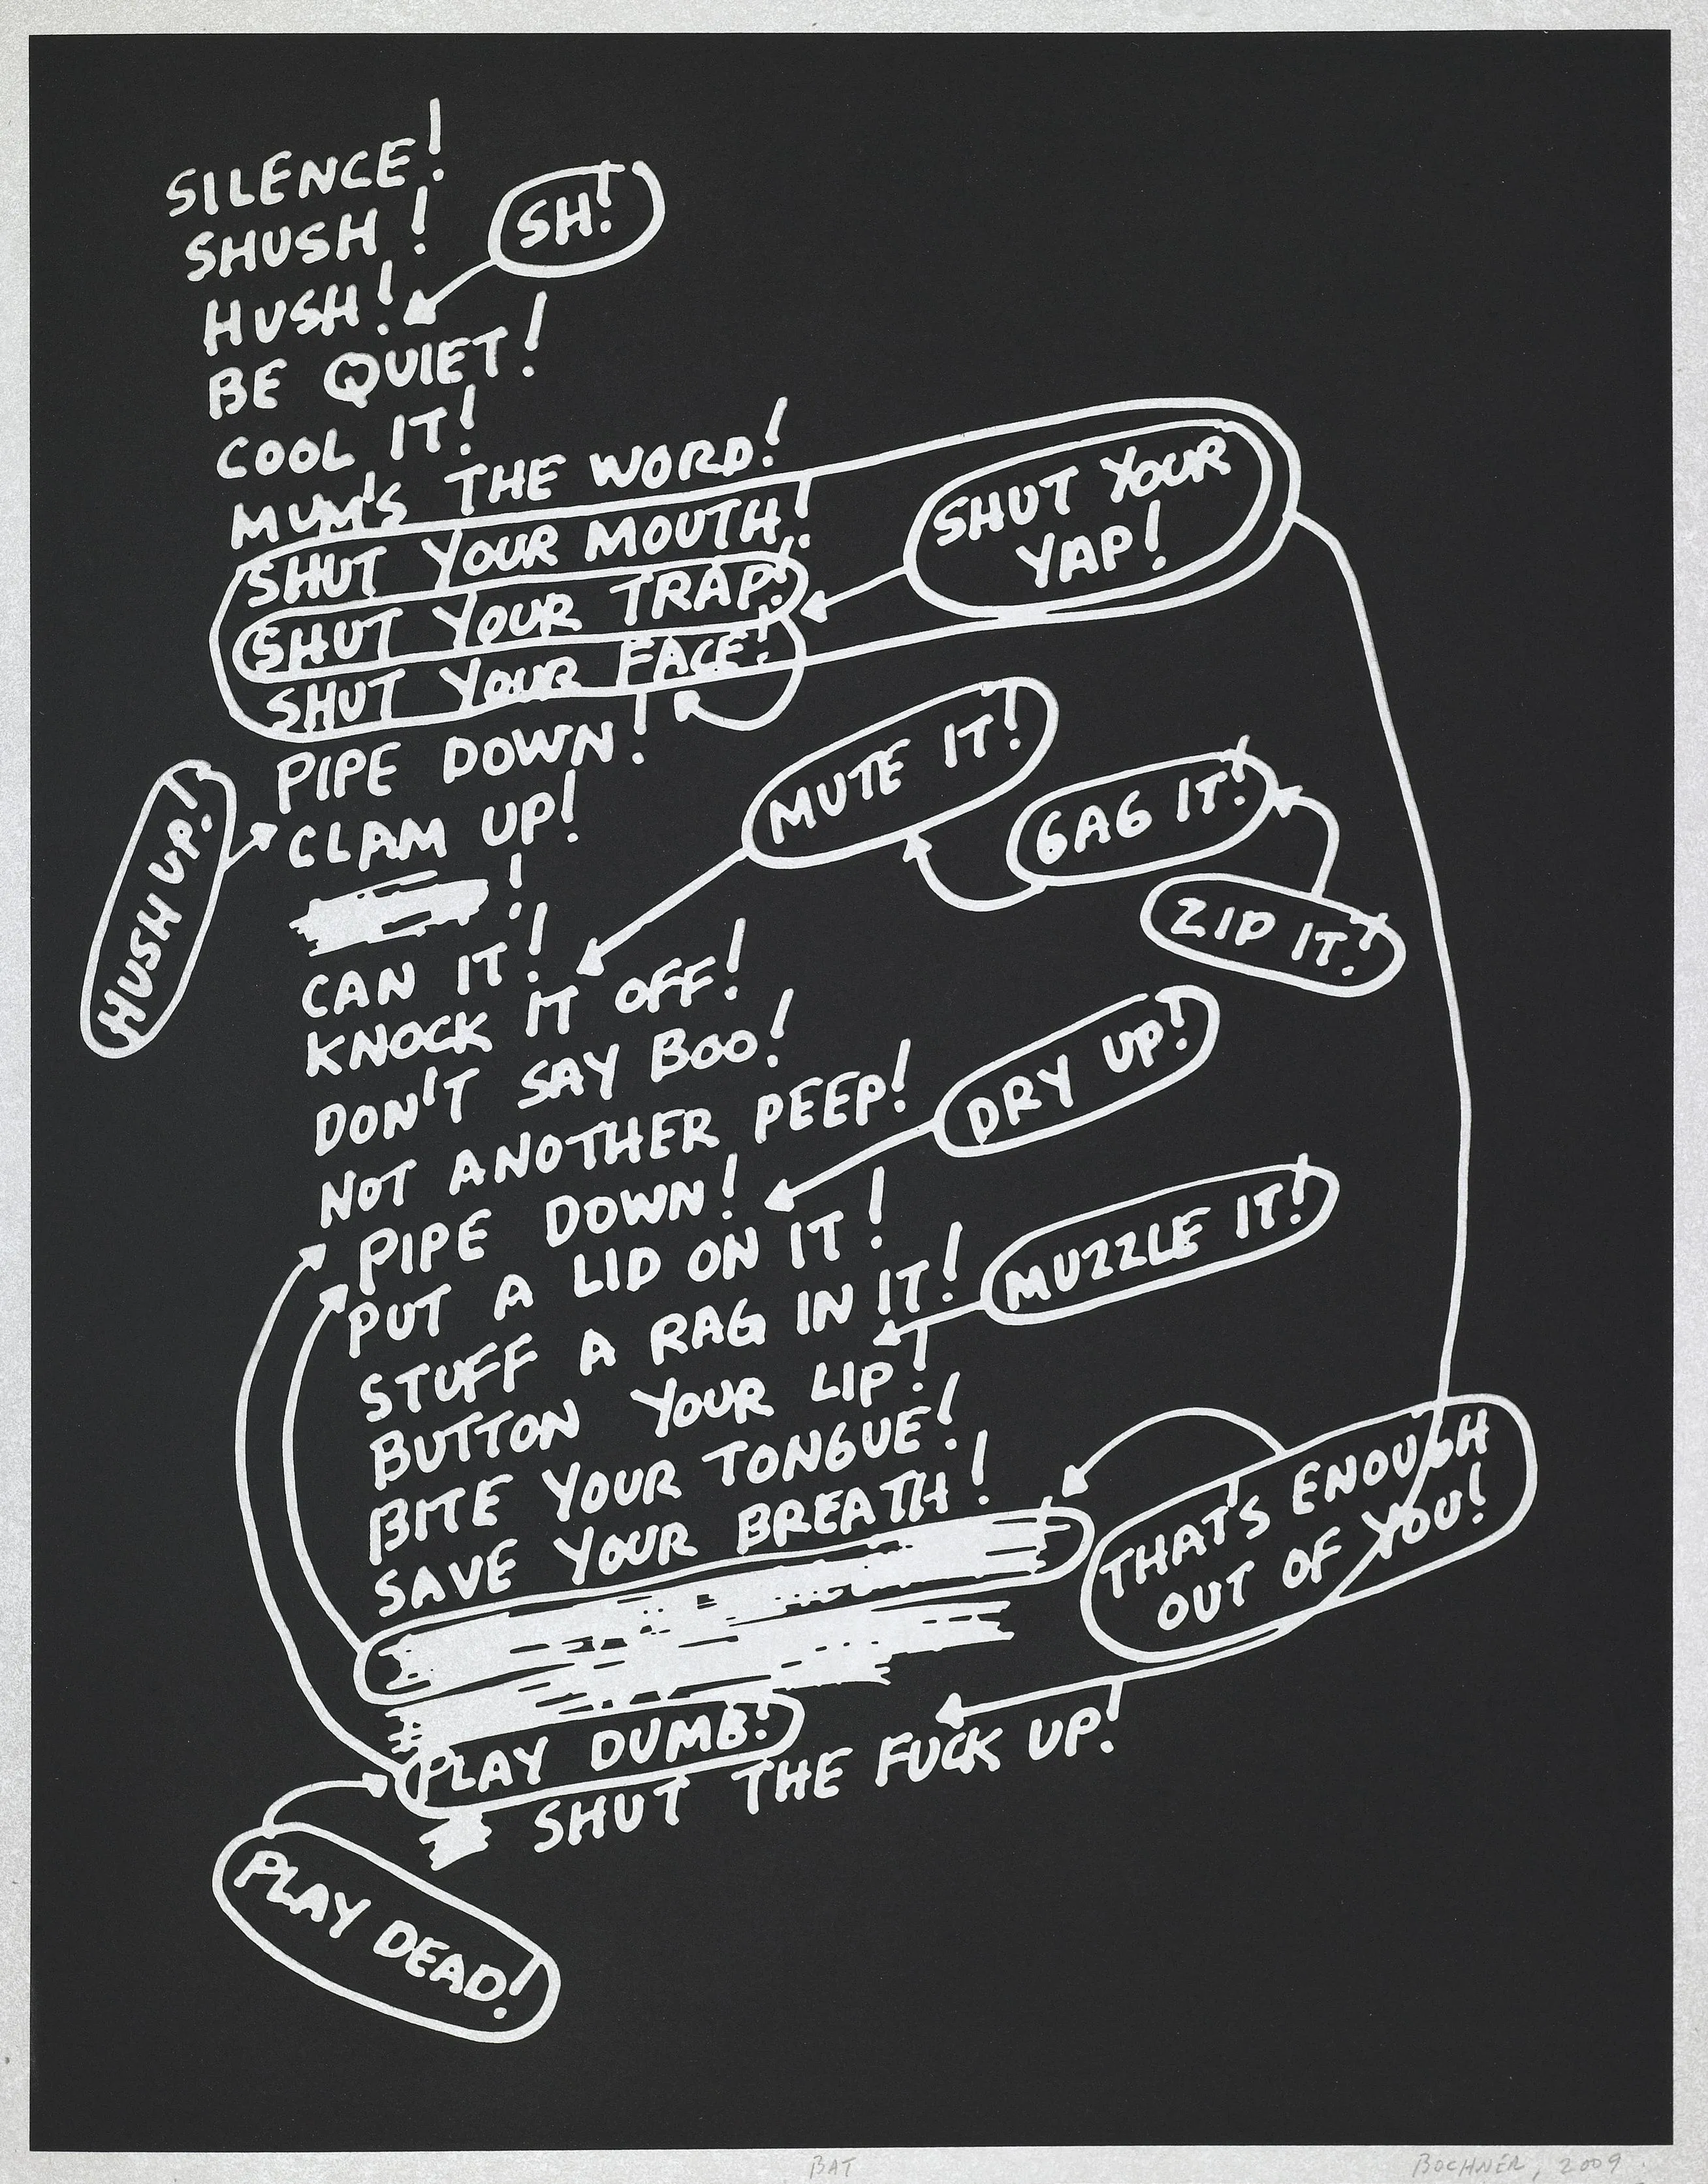 SILENCE!
SHUSH!
SH!
HUSH!
BE QUIET!
COOL IT!
MUM'S THE WORD!
SHUT YOUR MOUTH!
SHUT YOUR TRAP!
SHUT YOUR
YAP!
SHUT YOUR FACE!
PIPE DOWN!
HUSH UP!
CLAM UP!
!
CAN IT!
MUTE IT!
GAG IT!
ZIP IT!
KNOCK IT OFF!
DON'T SAY BOO!
NOT ANOTHER PEEP!
PIPE DOWN!
DRY UP!
PUT A LID ON IT!
STUFF A RAG IN IT!
MUZZLE IT!
BUTTON YOUR LIP!
BITE YOUR TONGUE!
SAVE YOUR BREATH!
THAT'S ENOUGH
OUT OF YOU!
PLAY DUMB!
SHUT THE FUCK UP!
PLAY DEAD!
BAT
BOCHNER, 2009.